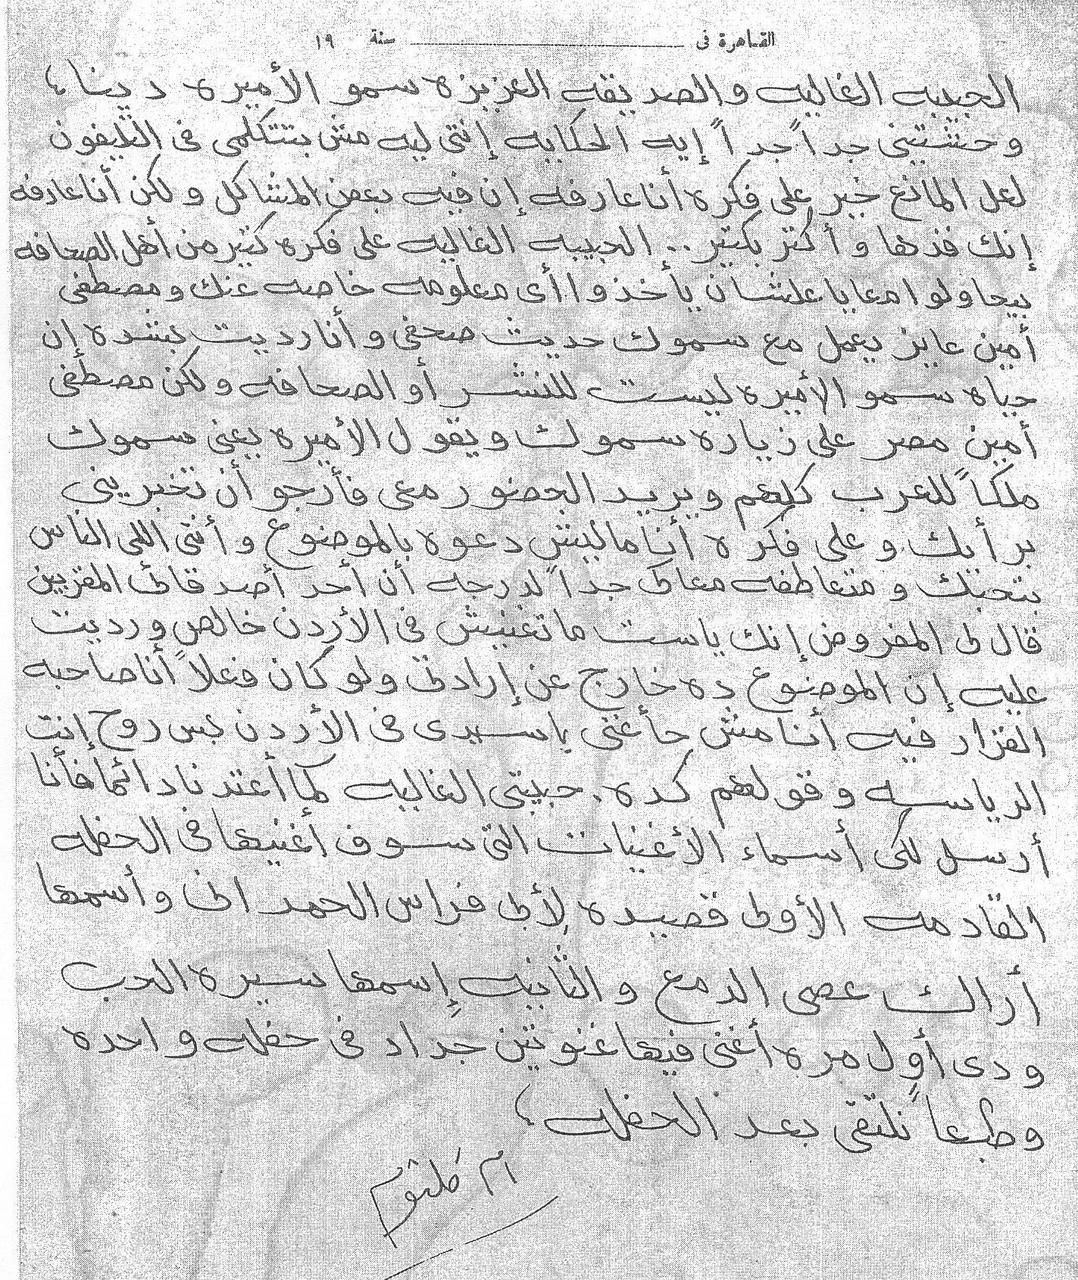 القاهرة فى ــــــــــــــــــــ سنة ١٩
الحبيبه الغاليه والصديقه العزيزه سمو الأميره دينا ،
وحشتينى جداً جداً إيه الحكايه إنتى ليه مش بتتكلمى فى التليفون
لعل المانع خير على فكره أنا عارفه إن فيه بعض المشاكل ولكن أنا عارفه
إنك قدها وأكتر بكتير .. الحبيبه الغاليه على فكره كتير من أهل الصحافه
بيحاولوا معايا علشان يأخذوا أى معلومه خاصه عنك ومصطفى
أمين عايز يعمل مع سموك حديث صحفى وأنا رديت بشده إن
حياه سمو الأميره ليست للنشر أو الصحافه ولكن مصطفى
أمين مصر على زياره سموك ويقول الأميره يعنى سموك
ملكاً للعرب كلهم ويريد الحضور معى فأرجو أن تخبرينى
برأيك وعلى فكره أنا ماليش دعوه بالموضوع وأنتى اللى الناس
بتحبك ومتعاطفه معاكى جداً لدرجه أن أحد أصدقائى المقربين
قال لى المفروض إنك ياست ماتغنيش فى الأردن خالص ورديت
عليه إن الموضوع ده خارج عن إرادتى ولو كان فعلاً أنا صاحبه
القرار فيه أنا مش حأغنى ياسيدى فى الأردن بس روح إنت
الرياسه وقولهم كده . حبيبتى الغاليه كما أعتدنا دائما فأنا
أرسل لكى أسماء الأغنيات التى سوف أغنيها فى الحفله
القادمه الأولى قصيده لأبى فراس الحمدانى وأسمها
أراك عصى الدمع والثانيه إسمها سيرة الحب
ودى أول مره أغنى فيها غنوتين جداد فى حفله واحده
وطبعاً نلتقى بعد الحفله ،
ام كلثوم